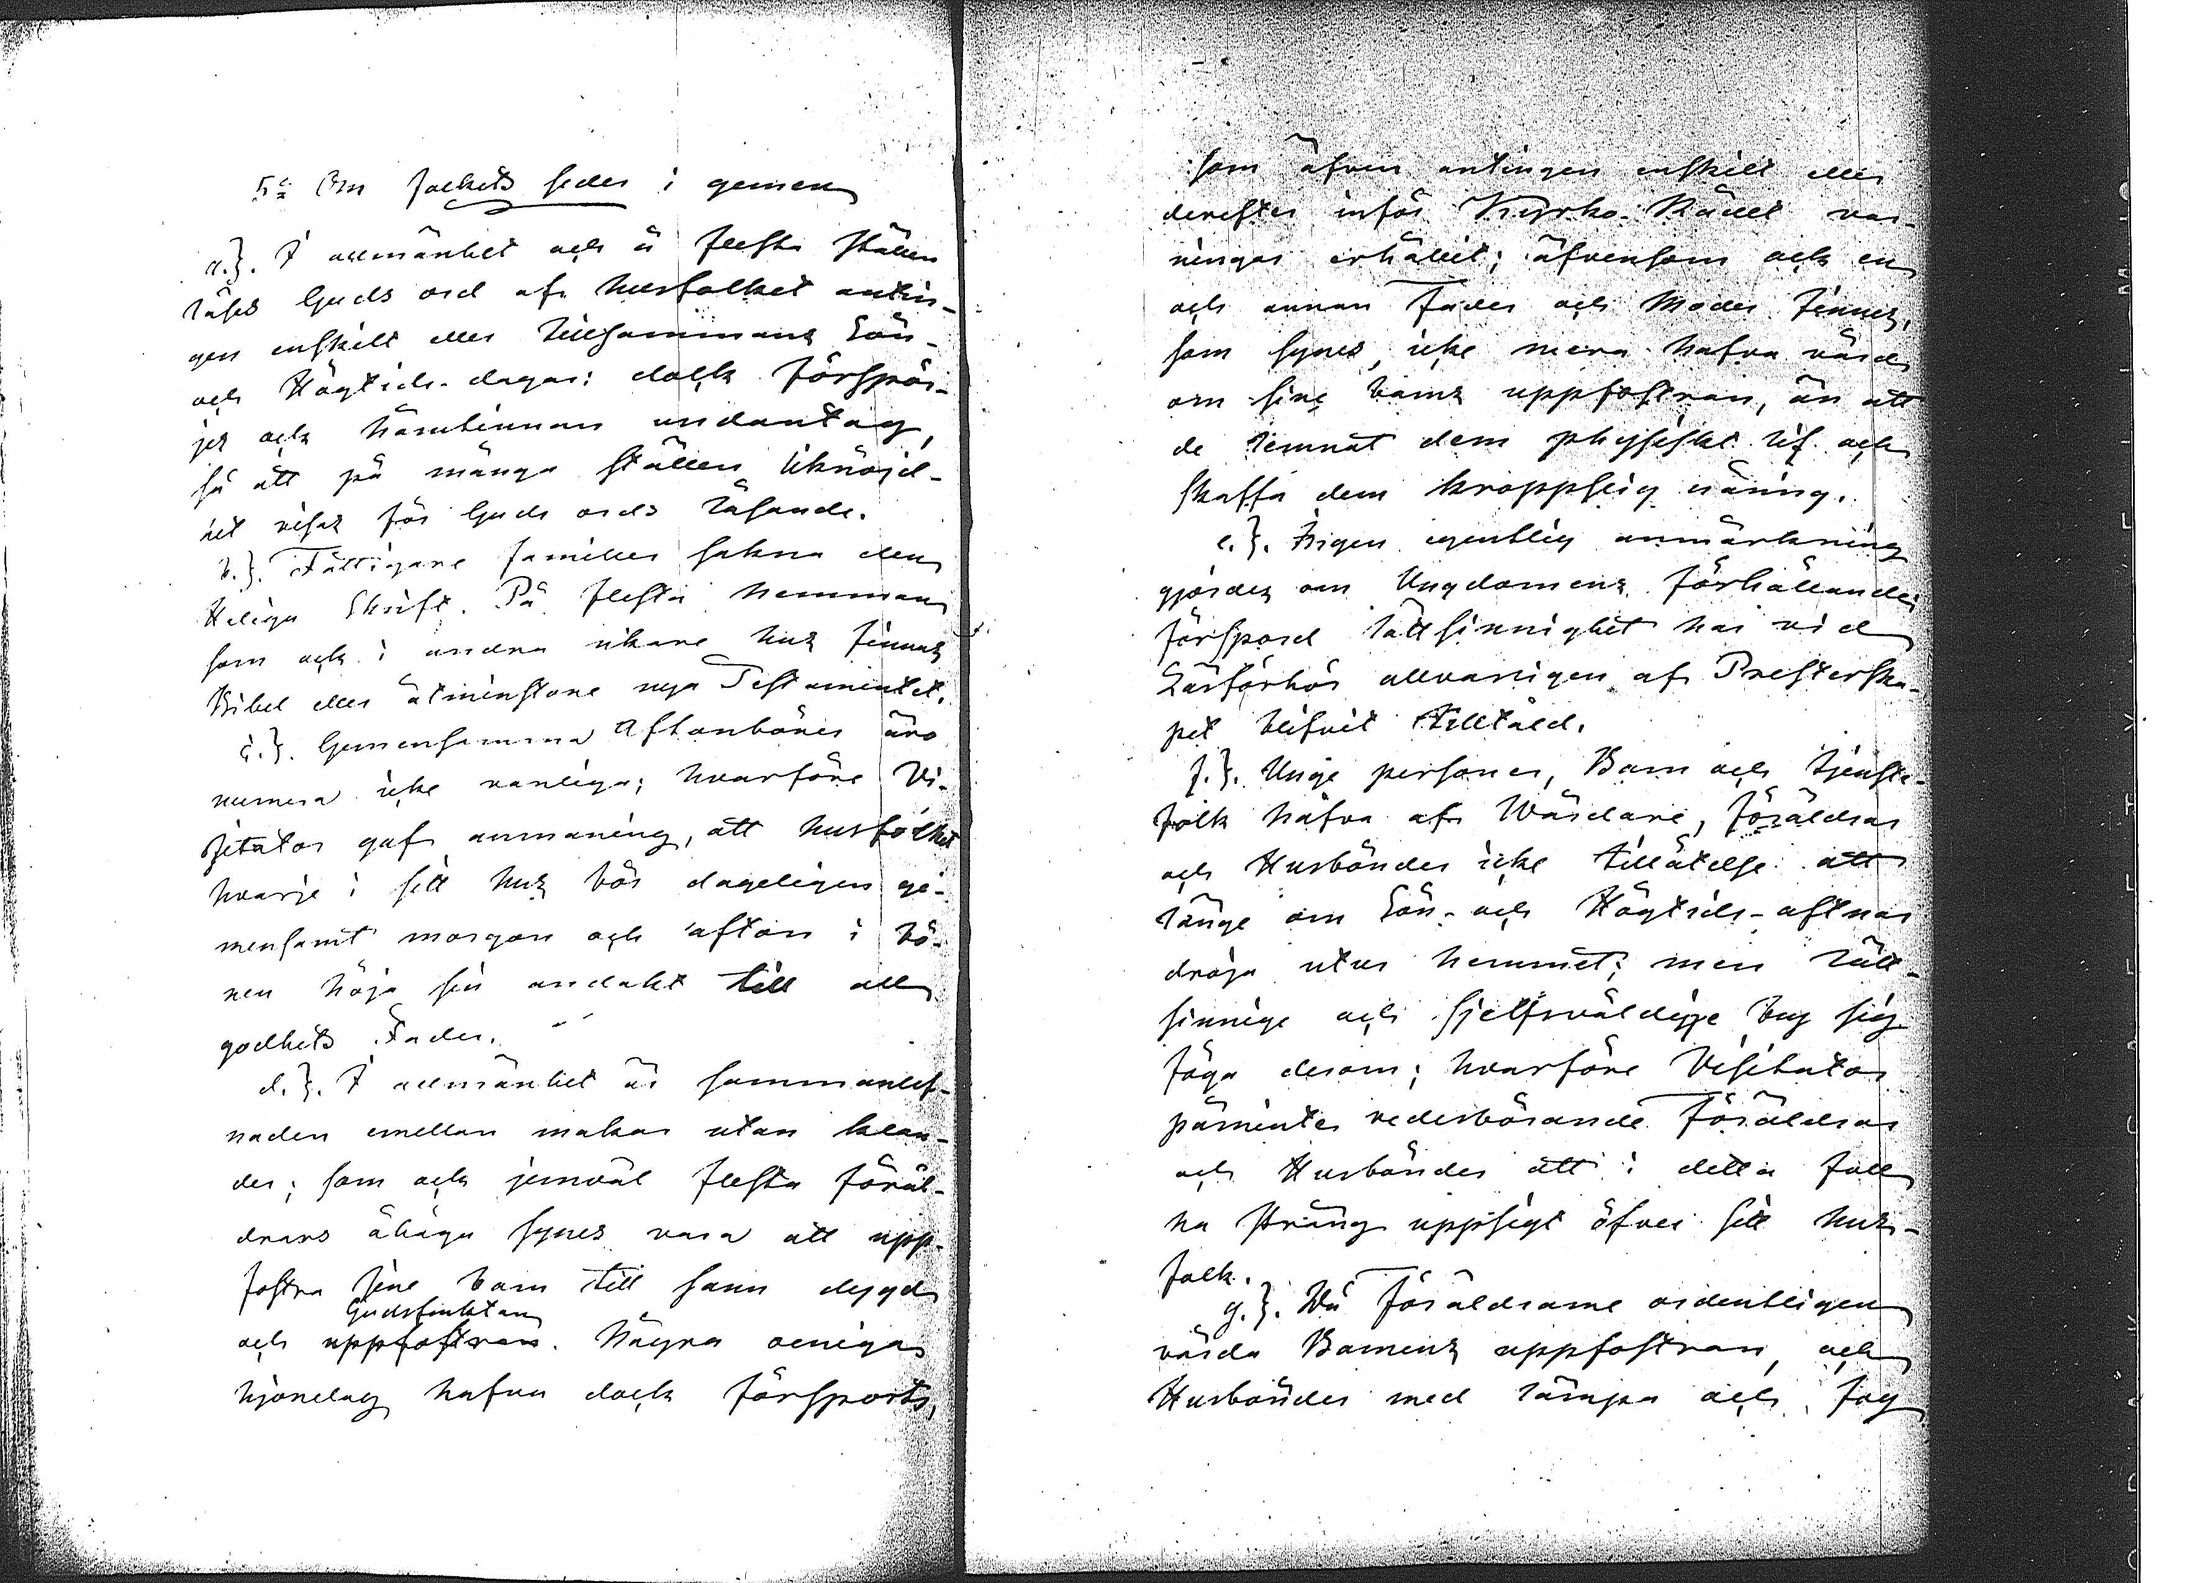 5:o Om folkets seder i gemen
a.}. I allmänhet och å flesta ställen
läses Guds ord af husfolket antin-
gen enskilt eller tillsammans Sön-
och Högtids-dagar: dock förspör-
jes och härutinnan undantag,
så att på många ställen liknöjd-
het visas för Guds ords läsande.
b.}. Fattigare familler sakna den
Heliga Skrift. På flesta hemman
som och i andra rikare hus finnes
Bibel eller åtminstone nya Testamentet.
c.}. Gemensamma Aftonböner äro
numera icke vanliga; hvarföre Vi-
sitator gaf anmaning, att husfolket
hvarje i sitt hus bör dageligen ge-
mensamt morgon och afton i bö-
nen höja sin andakt till all
godhets Fader.
d.}. I allmänhet är sammanlef-
naden emellan makar utan klan-
der; som och jemväl flesta föräl-
drars åhåga synes vara att upp-
fostra sine barn till sann dygd
Gudsfruktan
och uppfostran. Några oeniga
hjonelag hafva dock försports,
som äfven antingen enskilt eller
derefter inför Kyrko-Rådet var-
ningar erhållit; äfvensom och en
och annan Fader och Moder finnes,
som synes icke mera hafva vård
om sine barns uppfostran, än att
de lemnat dem physiskt lif och
skaffa dem kroppslig näring.
e.}. Ingen egentlig anmärkning
gjordes om Ungdomens förhållande;
förspord lättsinnighet har vid
Läsförhör allvarligen af Presterska-
pet blifvit tilltald.
f.}. Unge personer, Barn och tjenste-
folk hafva af Wårdare, föräldrar
och Husbönder icke tillåtelse att
länge om Sön- och Högtids-aftnar
dröja utur hemmet; men lätt-
sinnige och sjelfsvåldige bry sig
föga derom; hvarföre Visitator
påminte vederbörande Föräldrar
och Husbönder att i detta fall
ha sträng uppsigt öfver sitt hus-
folk.
g.}. Då Föräldrarne ordentligen
vårda Barnens uppfostran, och
Husbönder med lämpa och fog